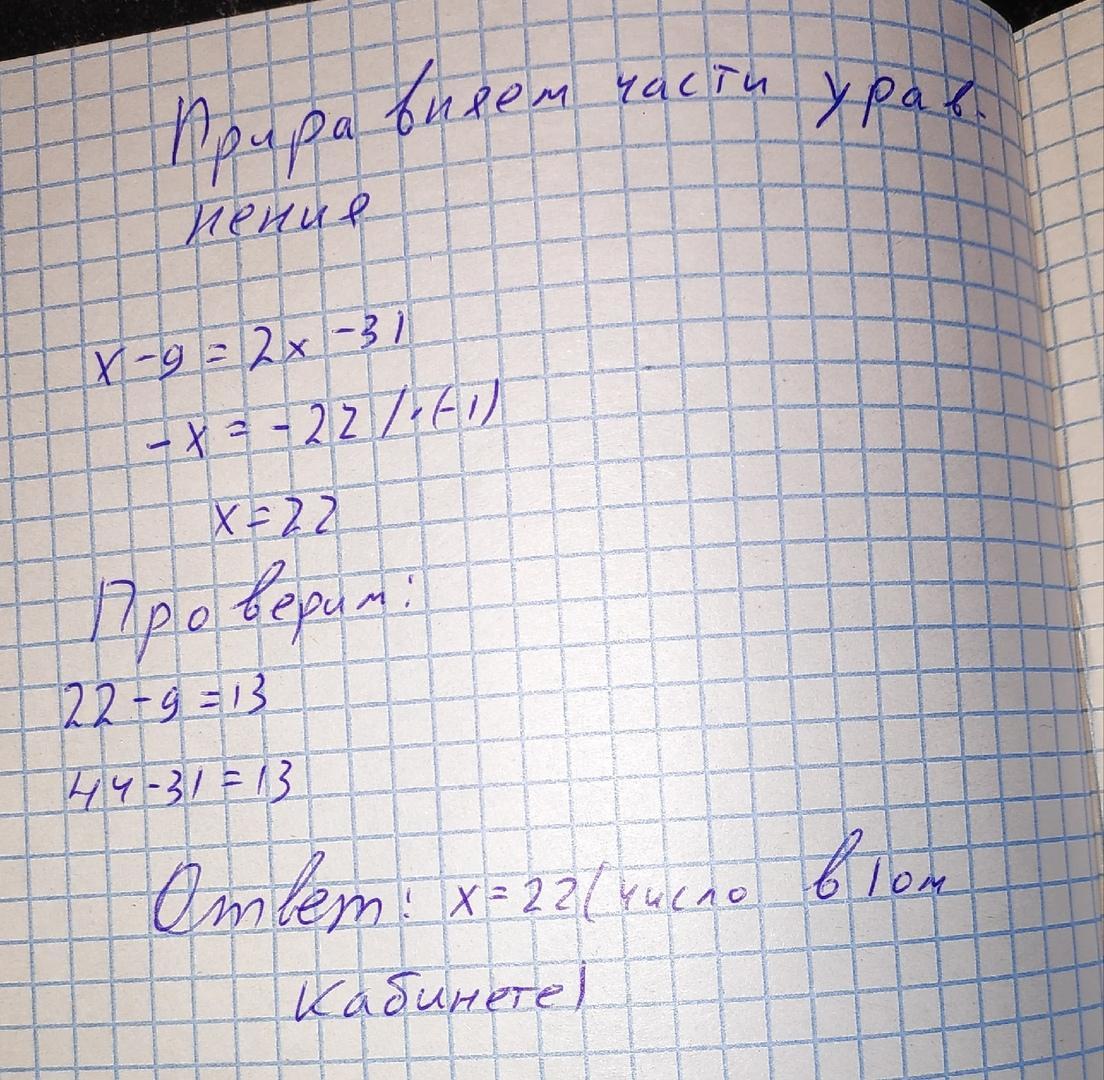 Прира вняем части урав-
нения
x - 9 = 2x - 31
-x = -22 / · (-1)
x = 22
Проверим:
22 - 9 = 13
44 - 31 = 13
Ответ: x = 22 (число в 1 ом
кабинете)